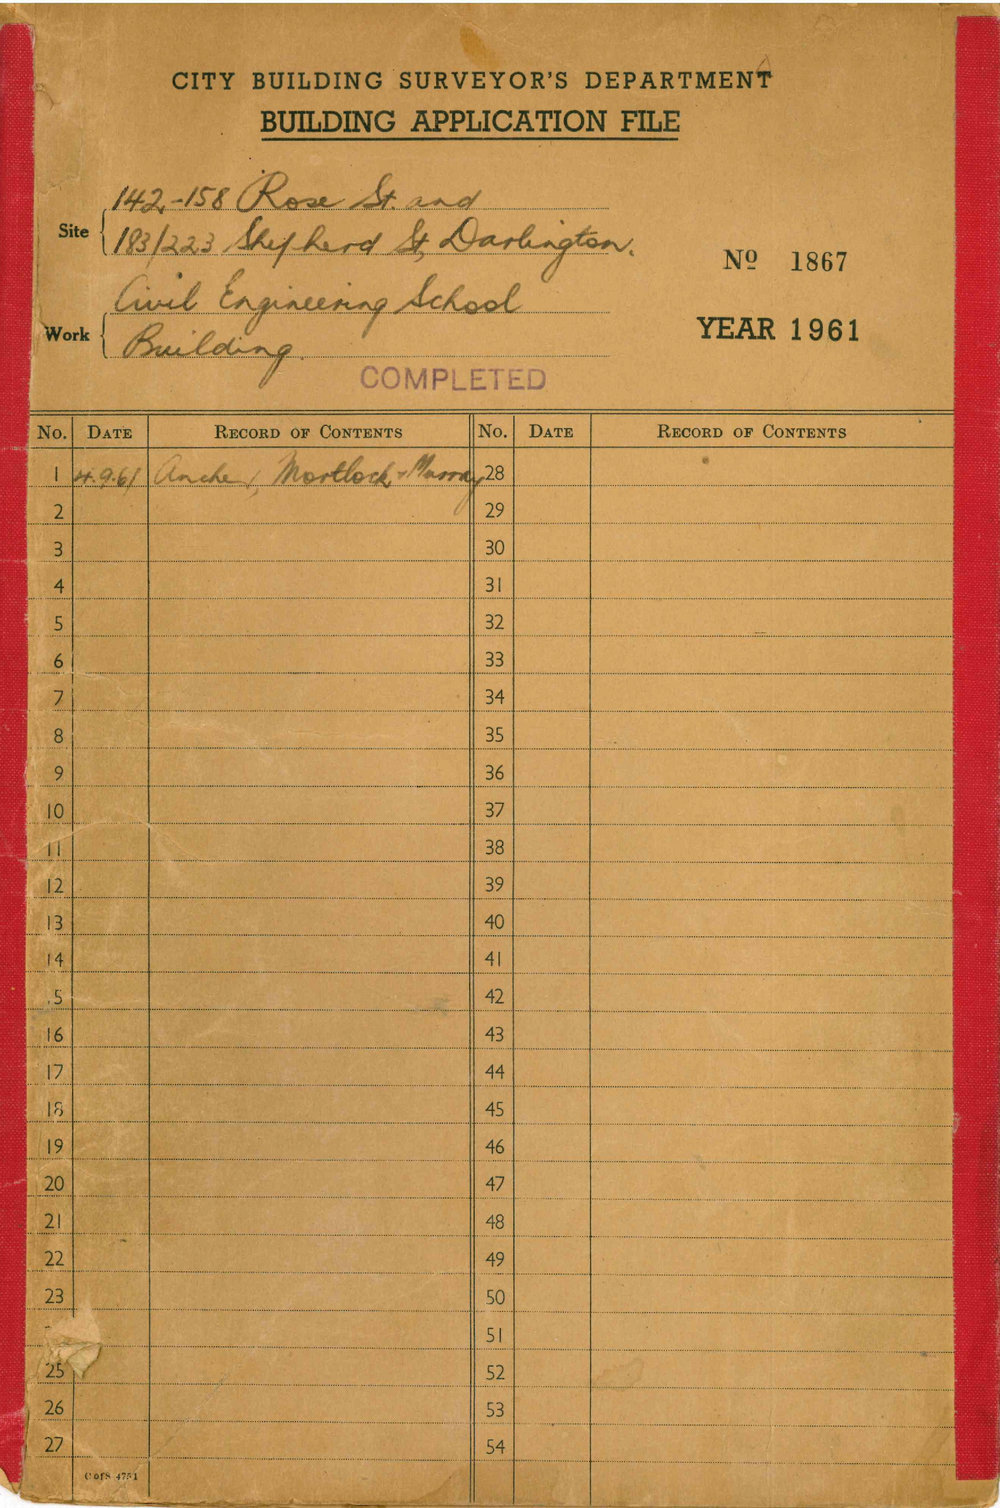 CITY BUILDING SURVEYOR'S DEPARTMENT
BUILDING APPLICATION FILE
Site
142-158 Rose St. and
183/223 Shepherd St, Darlington.
Nº 1867
Work
Civil Engineering School
Building.
YEAR 1961
COMPLETED
No. DATE RECORD OF CONTENTS No. DATE RECORD OF CONTENTS
1 4.9.61 Ancher, Mortlock & Murray 28
2 29
3 30
4 31
5 32
6 33
7 34
8 35
9 36
10 37
11 38
12 39
13 40
14 41
15 42
16 43
17 44
18 45
19 46
20 47
21 48
22 49
23 50
51
25 52
26 53
27 54
C of S 4751